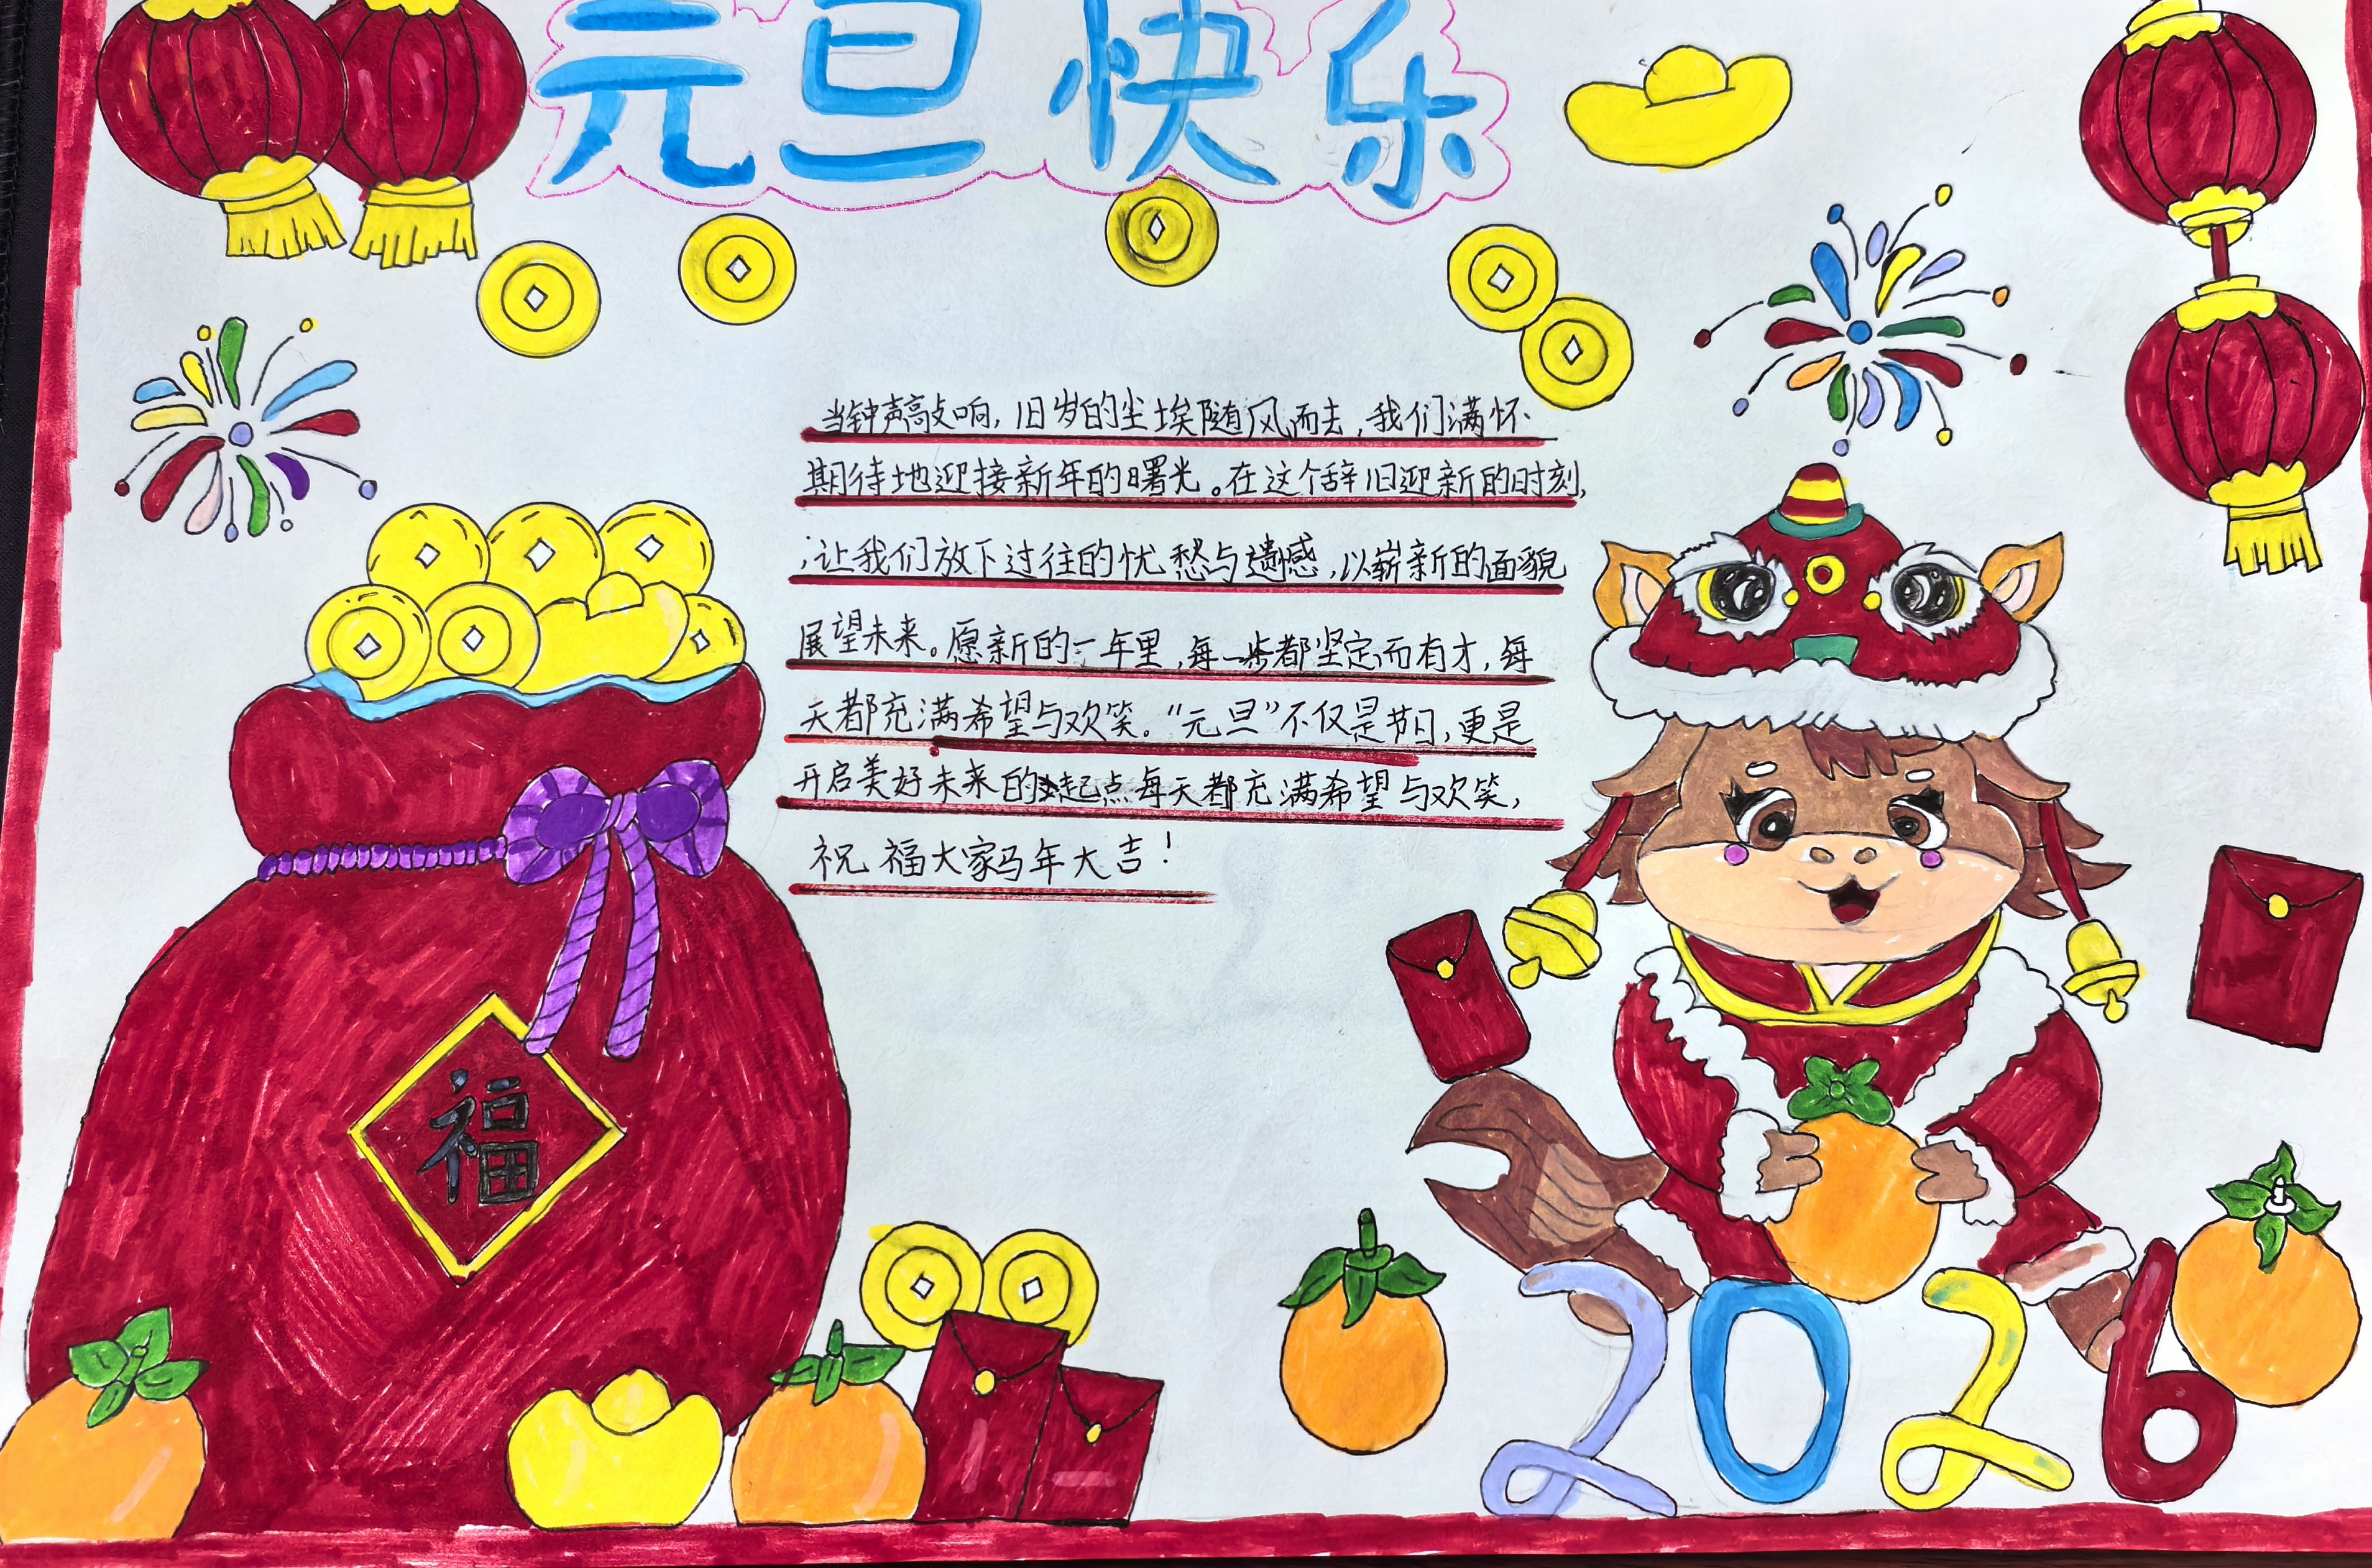 元旦快乐
当钟声敲响，旧岁的尘埃随风而去，我们满怀
期待地迎接新年的曙光。在这个辞旧迎新的时刻，
让我们放下过往的忧愁与遗憾，以崭新的面貌
展望未来。愿新的一年里，每一步都坚定而有才，每
天都充满希望与欢笑。“元旦”不仅是节日，更是
开启美好未来的起点每天都充满希望与欢笑，
祝福大家马年大吉！
福
2026